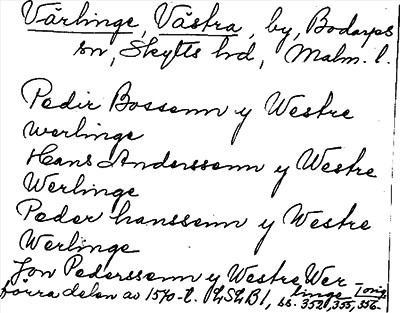 Värlinge, Västra, by, Bodarps
sn, Skytts hd, Malm. l.
Pedir Bossenn y Westre
werlinge
Hans Anderssenn y Westre
Werlinge
Peder hanssenn y Westre
Werlinge
Jon Pederssenn y Westre Wer
linge I orig.
förra delen av 1570-t. LSLB1, ss. 352, 355, 356.